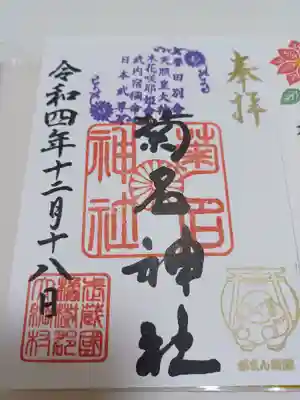 奉拝
誉田別命
天照皇大神
木花咲耶姫命
武内宿禰命
日本武尊
菊名神社
菊名
神社
令和四年十二月十八日
武蔵國
橘樹郡
大綱村
がまん様